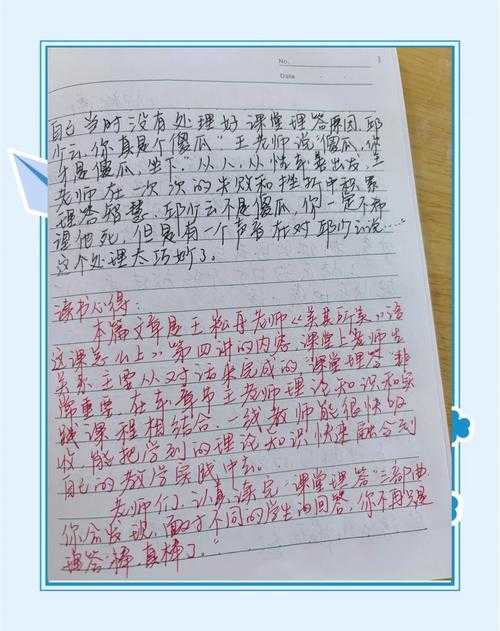 No.
Date
自己当时没有处理好课堂理答原因,邱
少云,你真是个傻瓜"王老师说"傻瓜,你
才是傻瓜,坐下。"从人,从情本善出发,王
老师在一次次的失败和挫折中积累
理答智慧。邱少云不是傻瓜,你一定不希
望他死,但是有一个声音在对邱少云说……"
这个处理太巧妙了。
读书心得:
本篇文章是王崧舟老师《美其所美》"语
这课怎么上》第四讲的内容,课堂上老师生
关系主要从对话来完成的"课堂理答"非
常重要,在本章节王老师理论知识和实
践课程相结合,一线教师能很快吸
收,能把学到的理论知识快速融合到
自己的教学实践中去。
老师们,认真读完"课堂理答"三部曲
你会发现,面对不同的学生的回答,你不再只是
理答"棒,真棒了!"